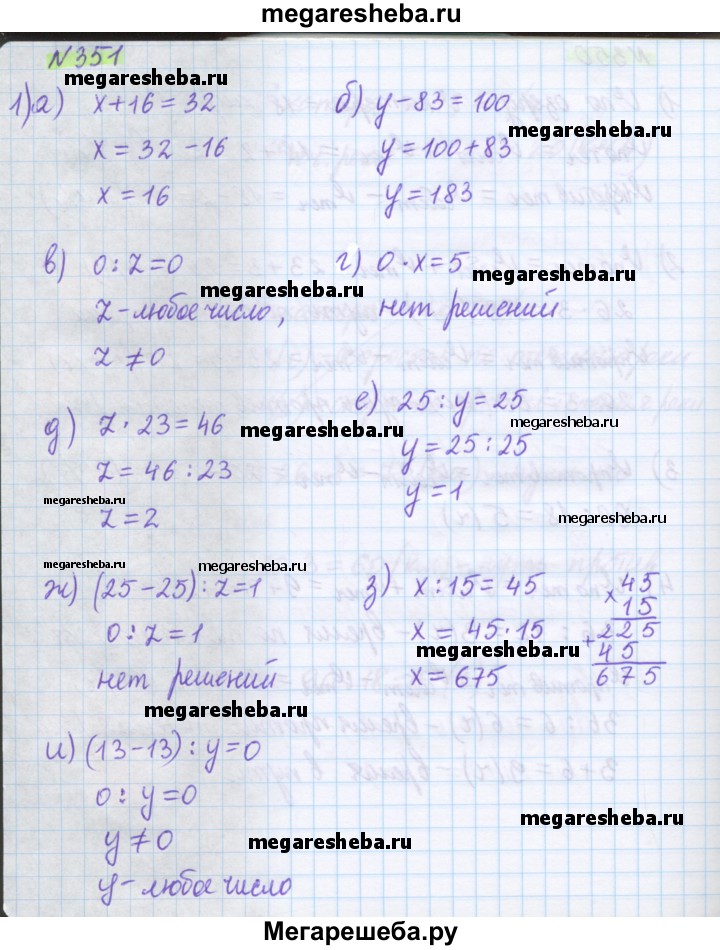 megaresheba.ru
N351
megaresheba.ru
1) а) x+16=32
x=32-16
x=16
б) y-83=100
megaresheba.ru
y=100+83
y=183
в) 0:z=0
megaresheba.ru
z-любое число,
z≠0
г) 0·x=5
megaresheba.ru
нет решений
д) z·23=46
megaresheba.ru
z=46:23
megaresheba.ru
z=2
е) 25:y=25
megaresheba.ru
y=25:25
y=1
megaresheba.ru
megaresheba.ru
megaresheba.ru
ж) (25-25):z=1
0:z=1
нет решений
megaresheba.ru
з) x:15=45
x=45·15
megaresheba.ru
x=675
×45
15
+225
45
675
и) (13-13):y=0
0:y=0
megaresheba.ru
y≠0
megaresheba.ru
y-любое число
Мегарешеба.ру